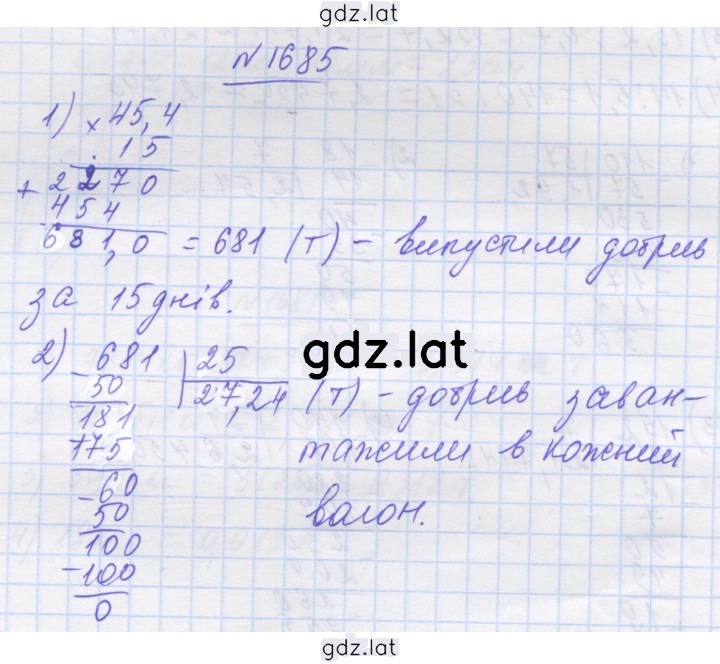 gdz.lat
№1685
1) × 45,4
15
+ 2270
454
681,0 = 681 (т) - випустили добрив
за 15 днів.
2) 681 | 25
- 50 27,24 (т) - добрив заван-
181 тажили в кожний
175 вагон.
- 60
50
100
- 100
0
gdz.lat
gdz.lat